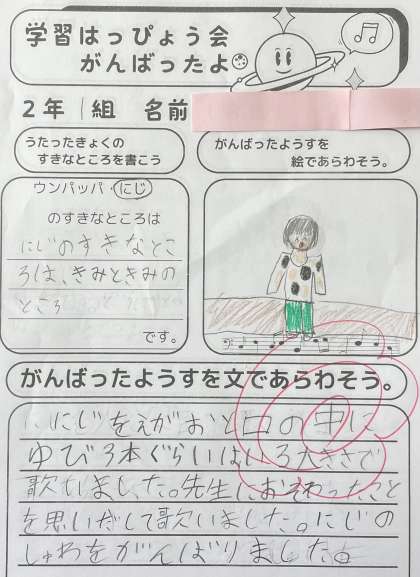 学習はっぴょう会
がんばったよ
2年1組 名前
うたったきょくの
すきなところを書こう
がんばったようすを
絵であらわそう。
ウンパッパ・にじ
のすきなところは
にじのすきなとこ
ろは、きみときみの
ところ
です。
がんばったようすを文であらわそう。
にじをえがおと口の中に
ゆび3本ぐらいはいる大きさで
歌いました。先生におそわったこと
を思いだして歌いました。にじの
しゅわをがんばりました。